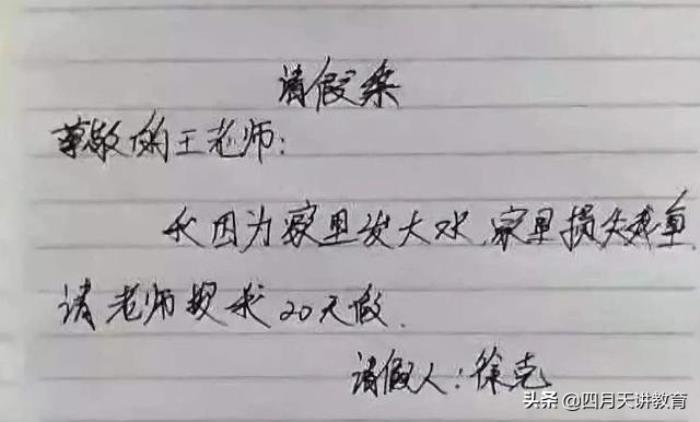 请假条
尊敬的王老师：
我因为家里发大水，家里损失惨重，
请老师批我20天假。
请假人：徐克
头条 @四月天讲教育